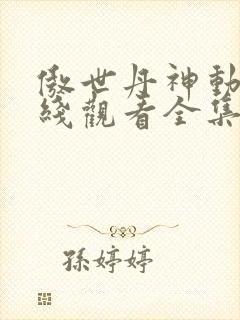 傲世丹神動
綫觀看全集
孫婷婷